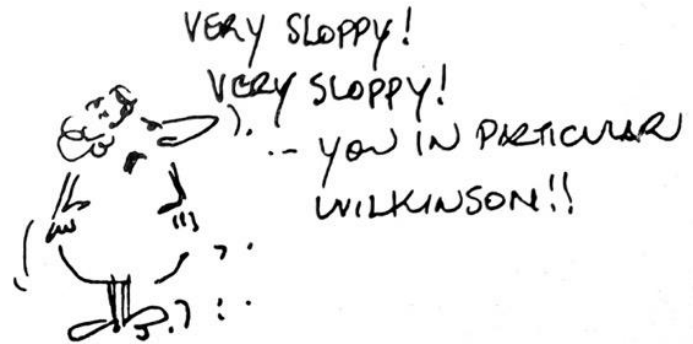 VERY SLOPPY!
VERY SLOPPY!
-- YOU IN PARTICULAR
WILKINSON!!